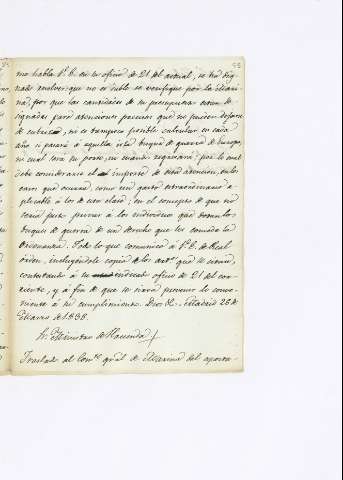 mo habla V.E. en su oficio de 21 del actual, se ha dig-
nado resolver: que no es dable se verifique por la Mari-
na, por que las cantidades de su presupuesto estan de-
signadas para atenciones precisas que no pueden dejarse
de cubrir, ni es tampoco posible calcular en cada
año si pasará á aquella isla buque de guerra de Europa,
ni cual será su porte, ni cuanto regresará; por lo cual
debe considerarse el importe de esta atencion, en los
casos que ocurran, como un gasto extraordinario a-
plicable á los de esa clase; en el concepto de que no
seria justo privar á los individuos que dotan los
buques de guerra de un derecho que les concede la
Ordenanza. Todo lo que comunico á V.E. de Real
orden, incluyendole copia de los art.os que se citan,
contestando á su indicado oficio de 21 del cor-
riente, y á fin de que se sirva proveer lo conve-
niente á su cumplimiento. Dios &.ª Madrid 28 de
Marzo de 1838.
Sr. Ministro de Hacienda
Traslado al Com.te gral de Marina del aposta-